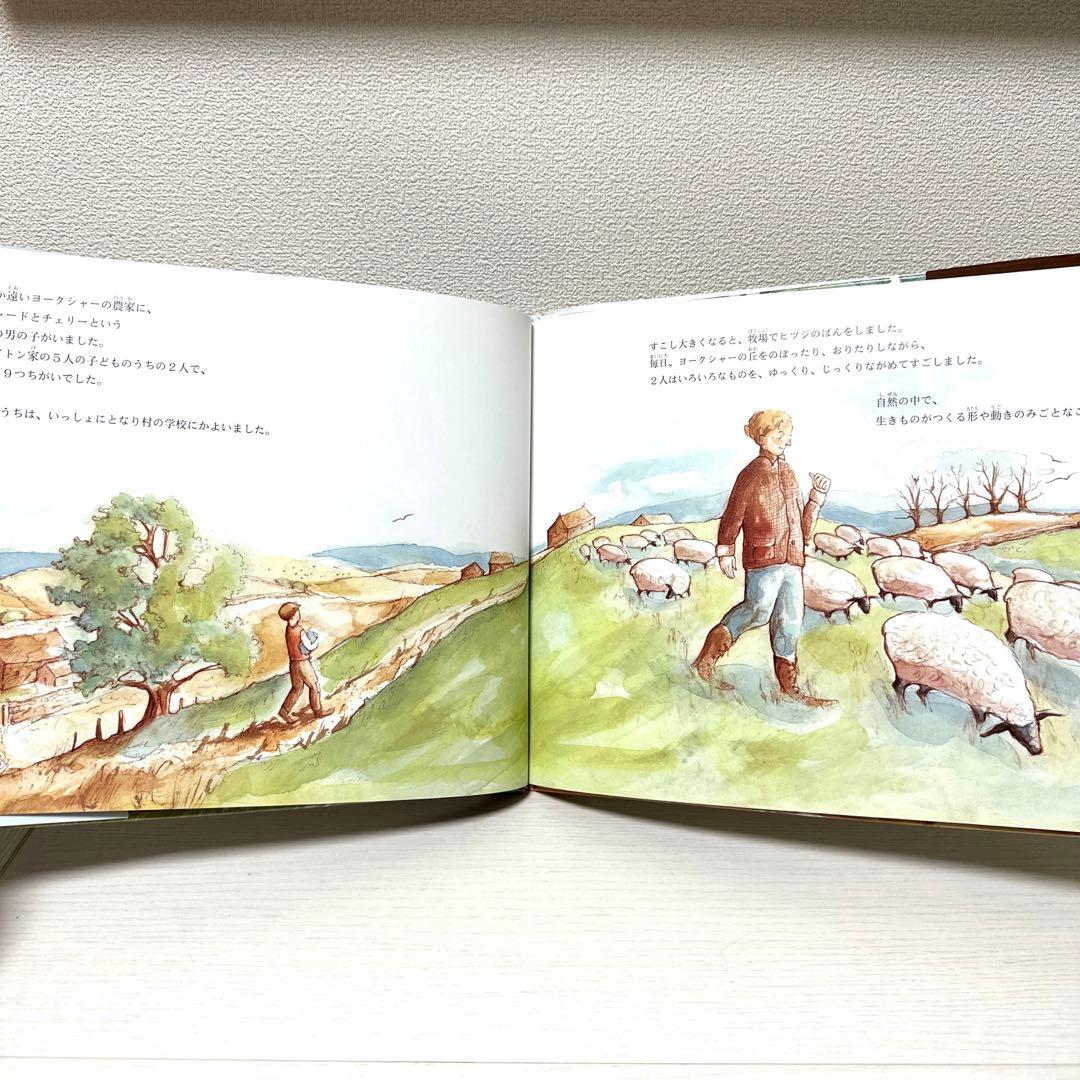 遠いヨークシャーの農家に、
ャードとチェリーという
の男の子がいました。
イトン家の５人の子どものうちの２人で、
９つちがいでした。
うちは、いっしょにとなり村の学校にかよいました。
すこし大きくなると、牧場でヒツジのばんをしました。
毎日、ヨークシャーの丘をのぼったり、おりたりしながら、
２人はいろいろなものを、ゆっくり、じっくりながめてすごしました。
自然の中で、
生きものがつくる形や動きのみごとなこ